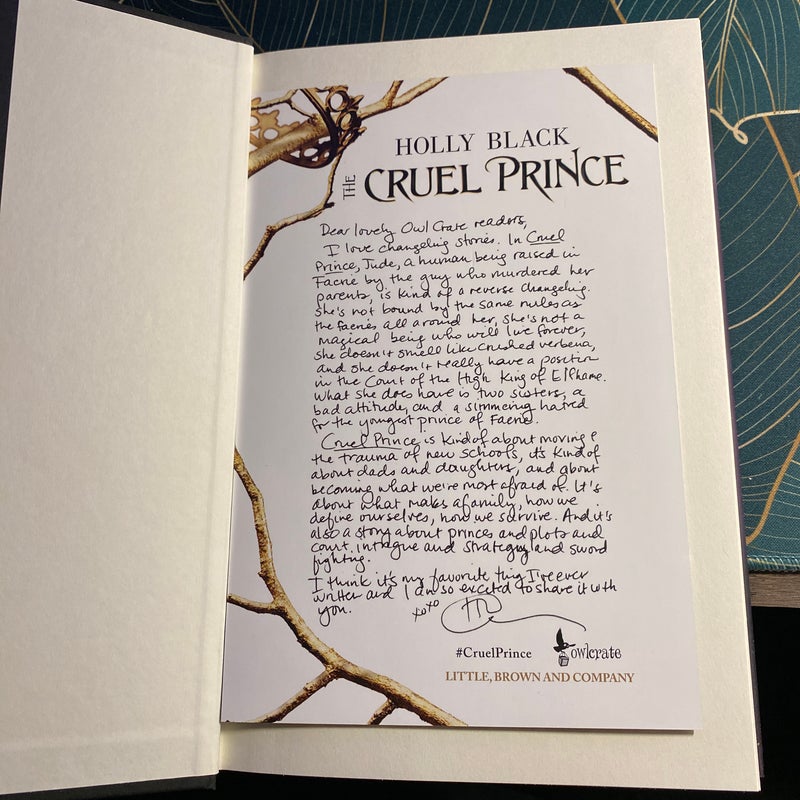 HOLLY BLACK
THE CRUEL PRINCE
Dear lovely Owl Crate readers,
I love changeling stories. In Cruel
Prince, Jude, a human being raised in
Faerie by the guy who murdered her
parents, is kind of a reverse changeling.
She's not bound by the same rules as
the faeries all around her, she's not a
magical being who will live forever,
she doesn't smell like crushed verbena,
and she doesn't really have a position
in the Court of the High King of Elfhame.
What she does have is two sisters, a
bad attitude, and a simmering hatred
for the youngest prince of Faerie.
Cruel Prince is kind of about moving &
the trauma of new schools, it's kind of
about dads and daughters, and about
becoming what we're most afraid of. It's
about what makes a family, how we
define ourselves, how we survive. And it's
also a story about princes and plots and
court intrigue and strategy and sword
fighting.
I think it's my favorite thing I've ever
written and I am so excited to share it with
you.
xoxo
#CruelPrince
owlcrate
LITTLE, BROWN AND COMPANY